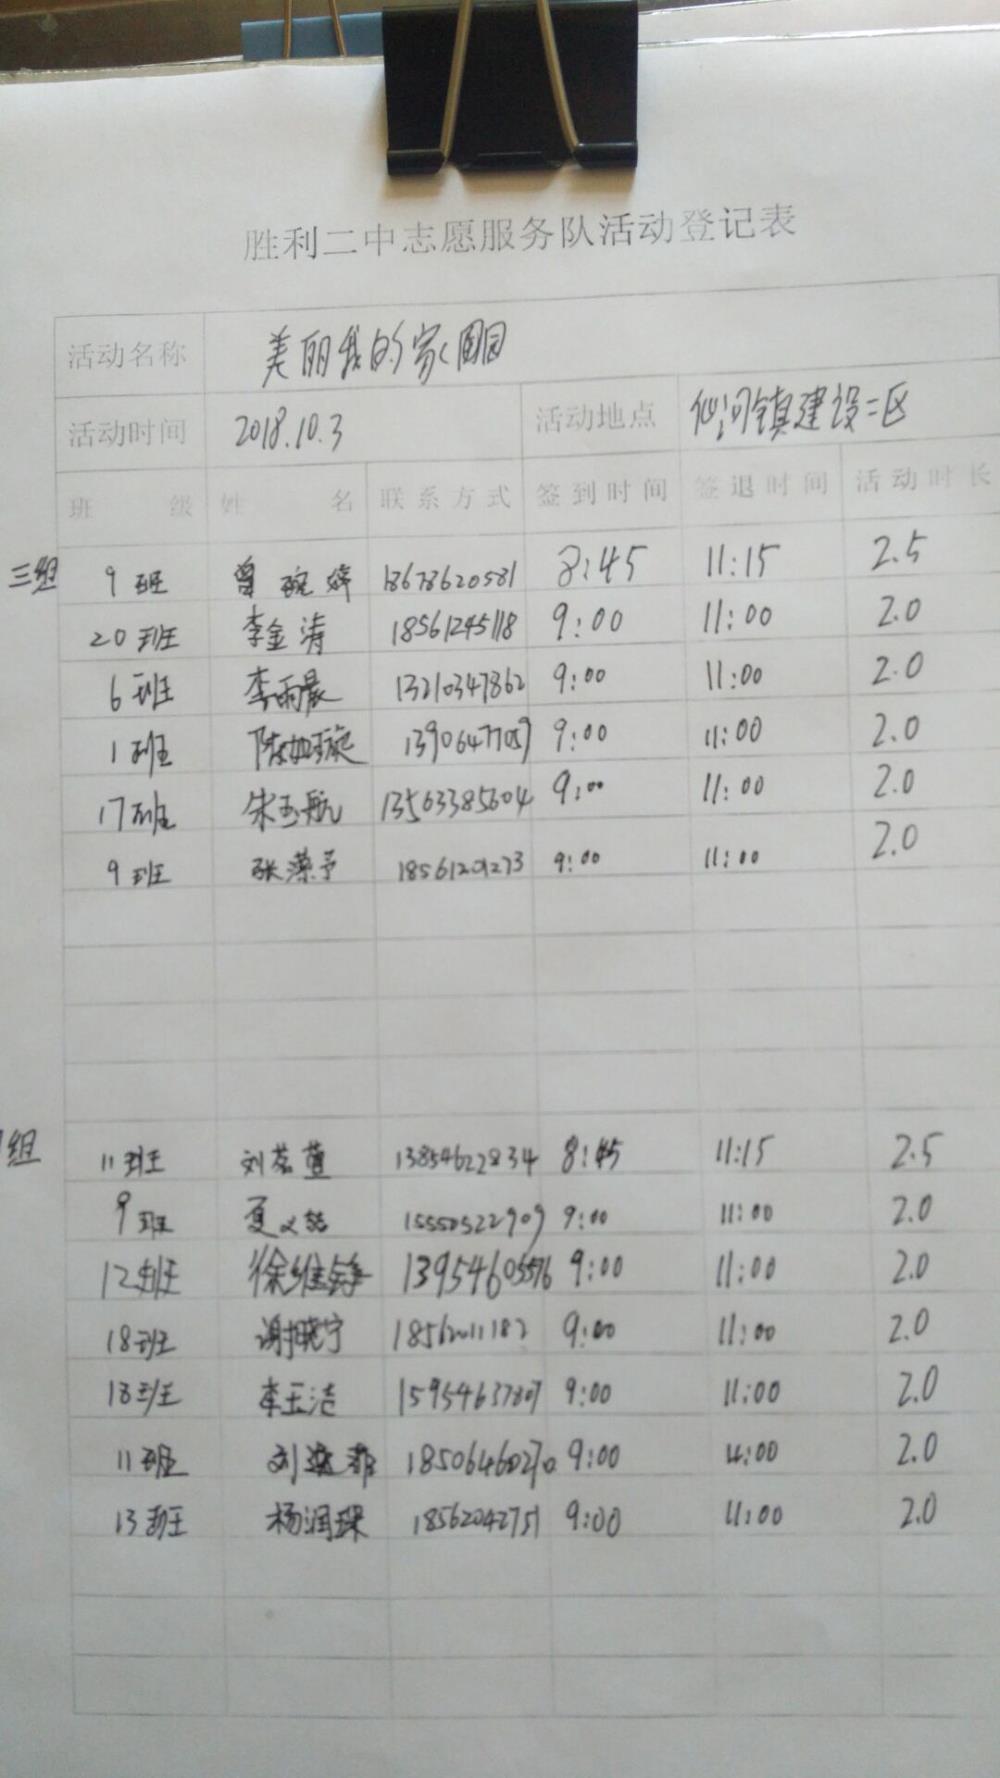 胜利二中志愿服务队活动登记表
活动名称 美丽我的家园
活动时间 2018.10.3 活动地点 仙河镇建设二区
班级 姓名 联系方式 签到时间 签退时间 活动时长
三组 9班 曾琬婷 18678620581 8:45 11:15 2.5
20班 李金涛 18561245118 9:00 11:00 2.0
6班 李雨晨 13210347862 9:00 11:00 2.0
1班 陈如璇 13906477059 9:00 11:00 2.0
17班 朱玉航 13563385604 9:00 11:00 2.0
9班 张藻予 18561201273 9:00 11:00 2.0
组 11班 刘茗萱 13854622834 8:45 11:15 2.5
9班 夏义喆 15550522909 9:00 11:00 2.0
12班 徐维铮 13954605576 9:00 11:00 2.0
18班 谢晓宇 18562011182 9:00 11:00 2.0
18班 李玉洁 15954637807 9:00 11:00 2.0
11班 刘 18506460270 9:00 11:00 2.0
13班 杨润琛 18562042751 9:00 11:00 2.0